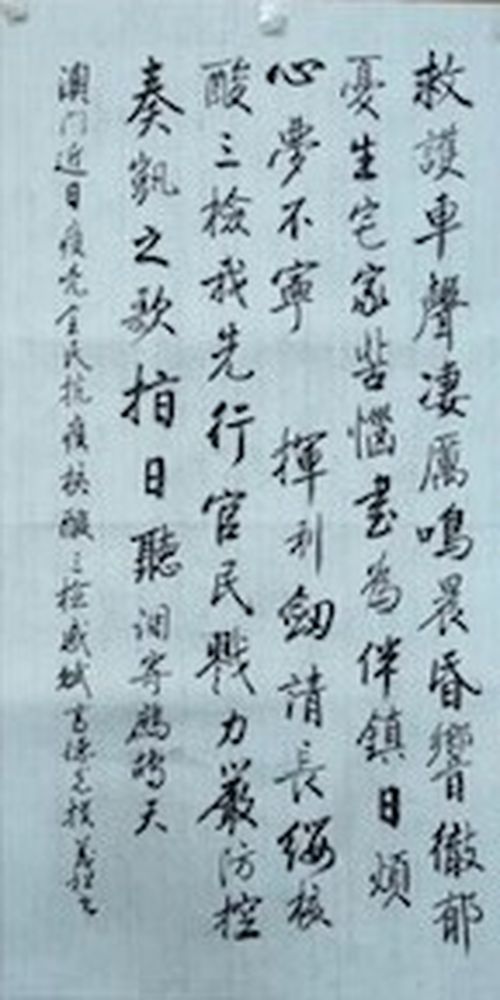 救護車聲淒厲鳴晨昏響徹郁
憂生宅家苦惱書為伴鎮日煩
心夢不寧 揮利劍請長纓核
酸三檢我先行官民戮力嚴防控
奏凱之歌指日聽 調寄鷓鴣天
澳门近日疫 全民抗疫核酸三检感赋